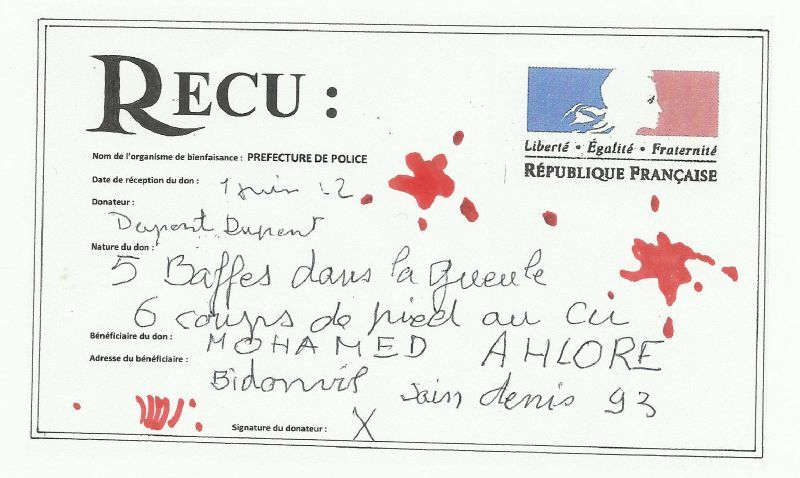 RECU :
Liberté • Égalité • Fraternité
RÉPUBLIQUE FRANÇAISE
Nom de l'organisme de bienfaisance : PREFECTURE DE POLICE
Date de réception du don : 1 Juin 12
Donateur :
Dupont Dupent
Nature du don :
5 Baffes dans la gueule
6 coups de pied au cu
Bénéficiaire du don : MOHAMED AHLORE
Adresse du bénéficiaire : Bidonvil Sain denis 93
Signature du donateur : X